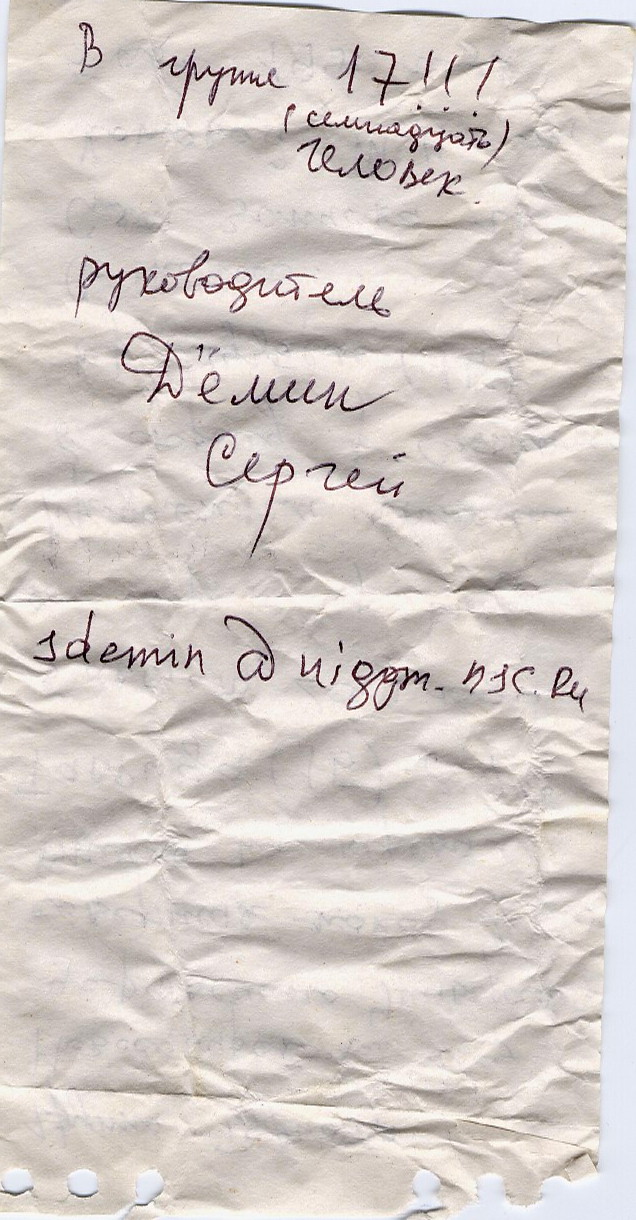 В группе 17!!!
(семнадцать)
человек.
руководитель
Дёмин
Сергей
sdemin @ uiggm.nsc.Ru